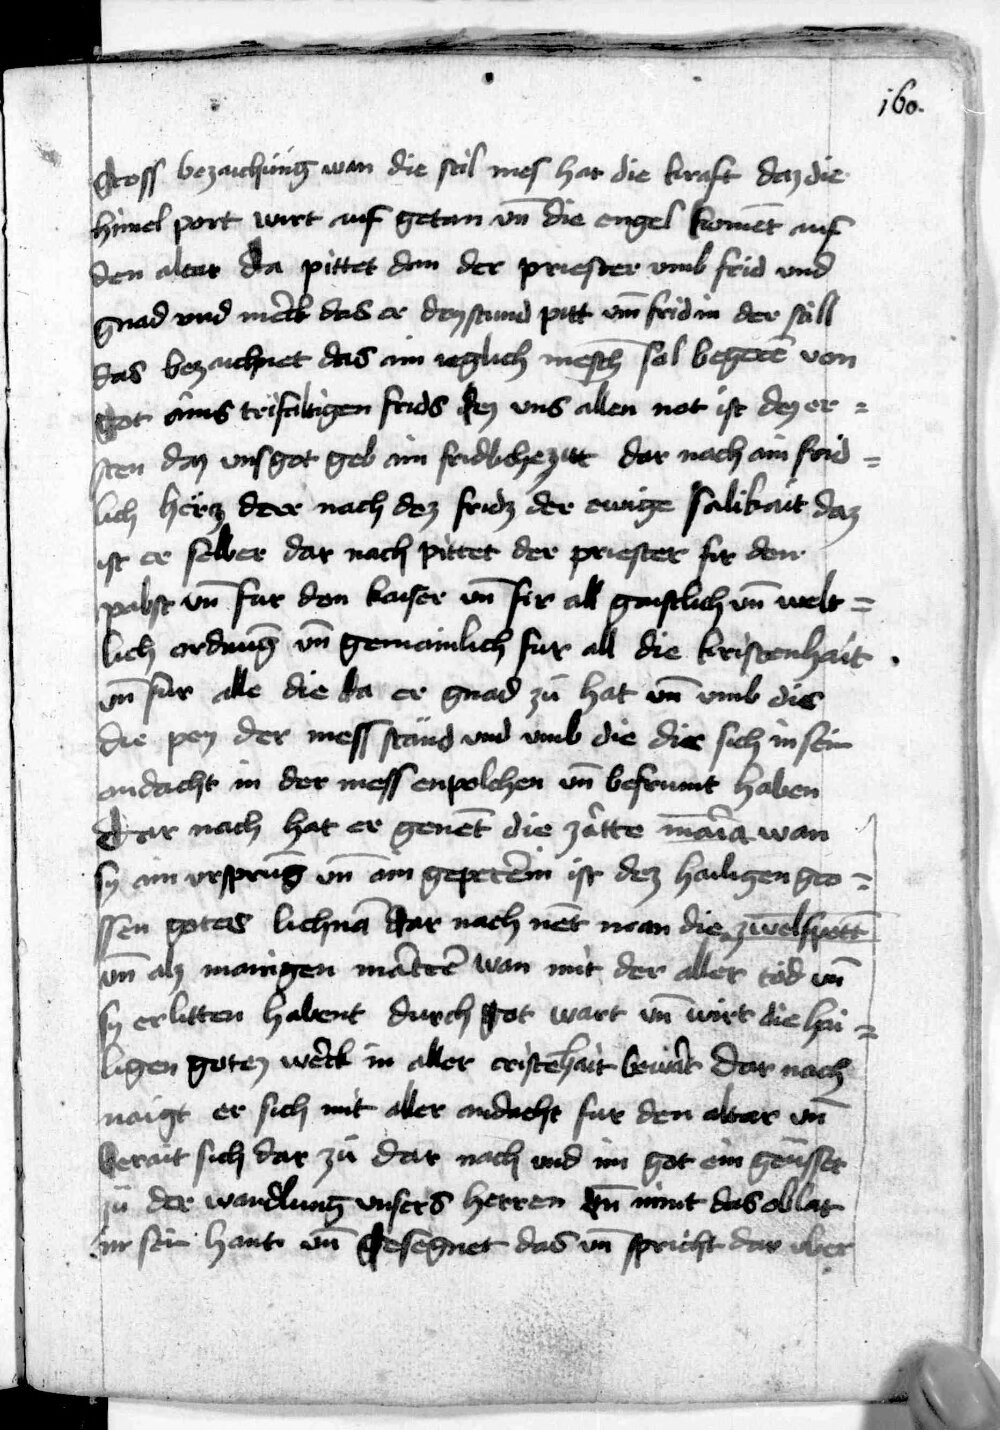 160.
Gross bezaichnūg wan die stil mes hat die kraft daz die
himel port wirt auf getan vn̄ die engel komēt auf
den altar da pittet dan der priester vmb frid vnd
gnad vnd merck das er dreystund pitt vm̄ frid in der still
das bezaichnet das ain ieglich mēsch sol begerē von
got ains trifaltigen frids der vns allen not ist dez er =
sten daz vns got geb ain fridliche zit dar nach ain frid =
lich hercz dar nach dez fridz der ewige salikait daz
ist er selber dar nach pittet der priester fur den
pabst vn̄ fur den kaiser vn̄ fir all gaistlich vn̄ welt =
lich ordnūg vn̄ gemainlich fur all die kristenhait .
vn̄ fur alle die da er gnad zů hat vn̄ vmb die
die pey der mess stānd vnd vmb die die sich in sein
andacht in der mess enpolchen vn̄ befrumt haben
Dar nach hat er genēt die zarte maria wan
sy ain vrsprūg vn̄ ain gepererin ist dez hailigen gro =
ssen gotes lichnā dar nach nēt man die zwelfpottē
vn̄ als manigen martrē wan mit der aller tod vn̄
sy erlitten habent durch got wart vn̄ wirt die hai =
ligen gotez werck in aller cristēhait bewart Dar nach
naigt er sich mit aller andacht fur den altar vn̄
berait sich dar zů dar nach vnd im got ein geusset
zů der wandlung vnsers herren vn̄ nimt das oblat
in sein hant vn̄ gesegnet das vn̄ spricht dar vber